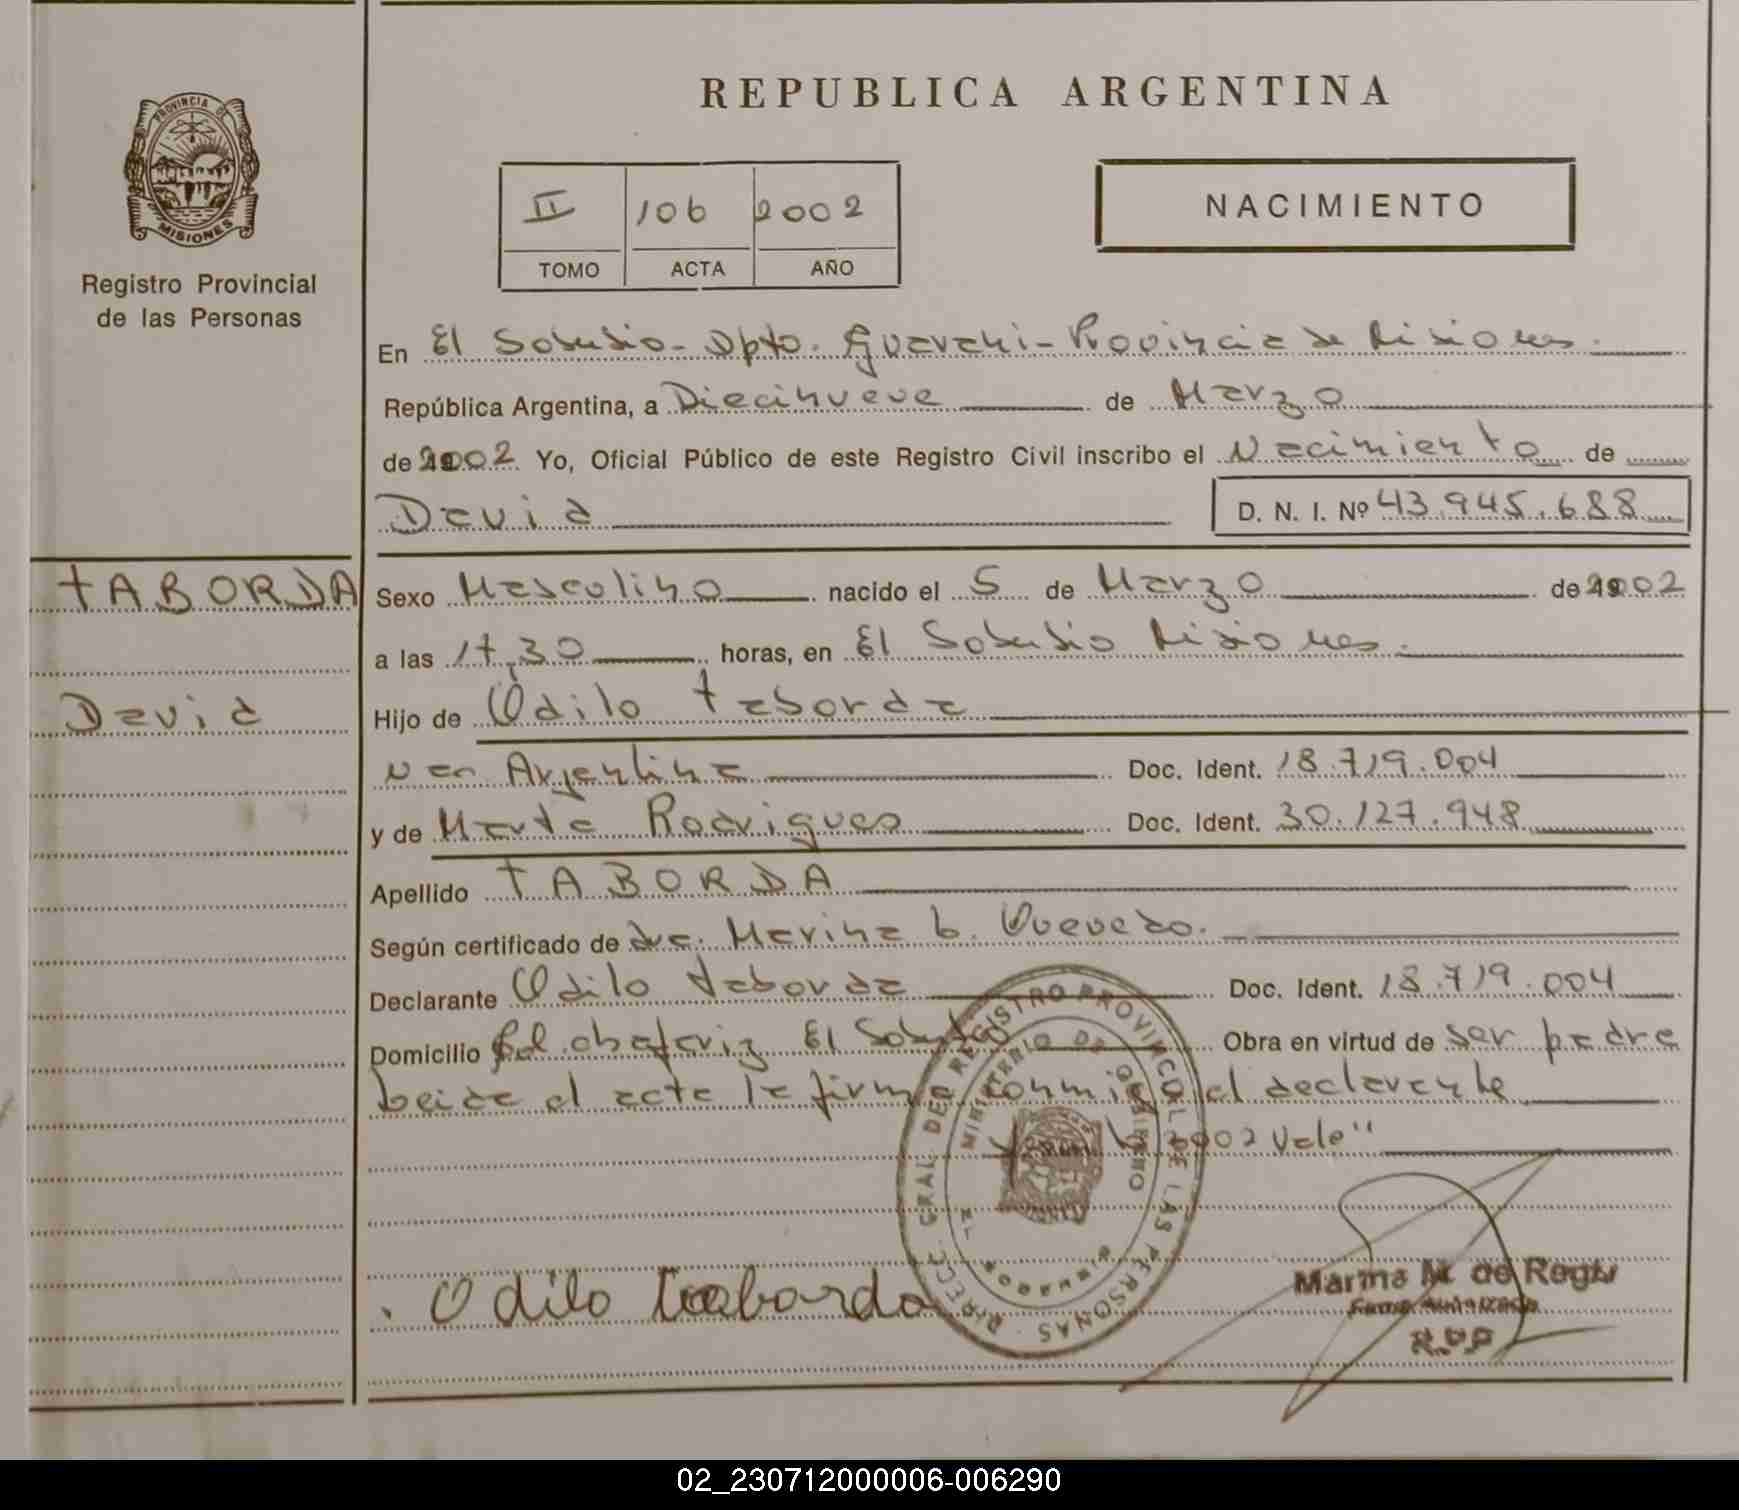 REPUBLICA ARGENTINA
PROVINCIA DE
MISIONES
Registro Provincial
de las Personas
II 106 2002
TOMO ACTA AÑO
NACIMIENTO
En El Soberbio - Dpto. Guarani - Provincia de Misiones.
República Argentina, a Diecinueve de Marzo
de 2002 Yo, Oficial Público de este Registro Civil inscribo el Nacimiento de
David
D. N. I. Nº 43.945.688
TABORDA
David
Sexo Masculino nacido el 5 de Marzo de 2002
a las 17,30 horas, en El Soberbio Misiones.
Hijo de Odilo Taborda
Nac. Argentina Doc. Ident. 18.719.004
y de Marta Rodrigues Doc. Ident. 30.127.948
Apellido TABORDA
Según certificado de Dra. Marina b. Quevedo.
Declarante Odilo Taborda Doc. Ident. 18.719.004
Domicilio El Soberbio Obra en virtud de ser padre
Leida el acta la firma conmigo el declarante
2002 Vale"
DIRECC. GRAL. DEL REGISTRO PROVINCIAL DE LAS PERSONAS
MINISTERIO DE GOBIERNO
Odilo taborda
Marina M. de Regis
R.P.P
02_230712000006-006290